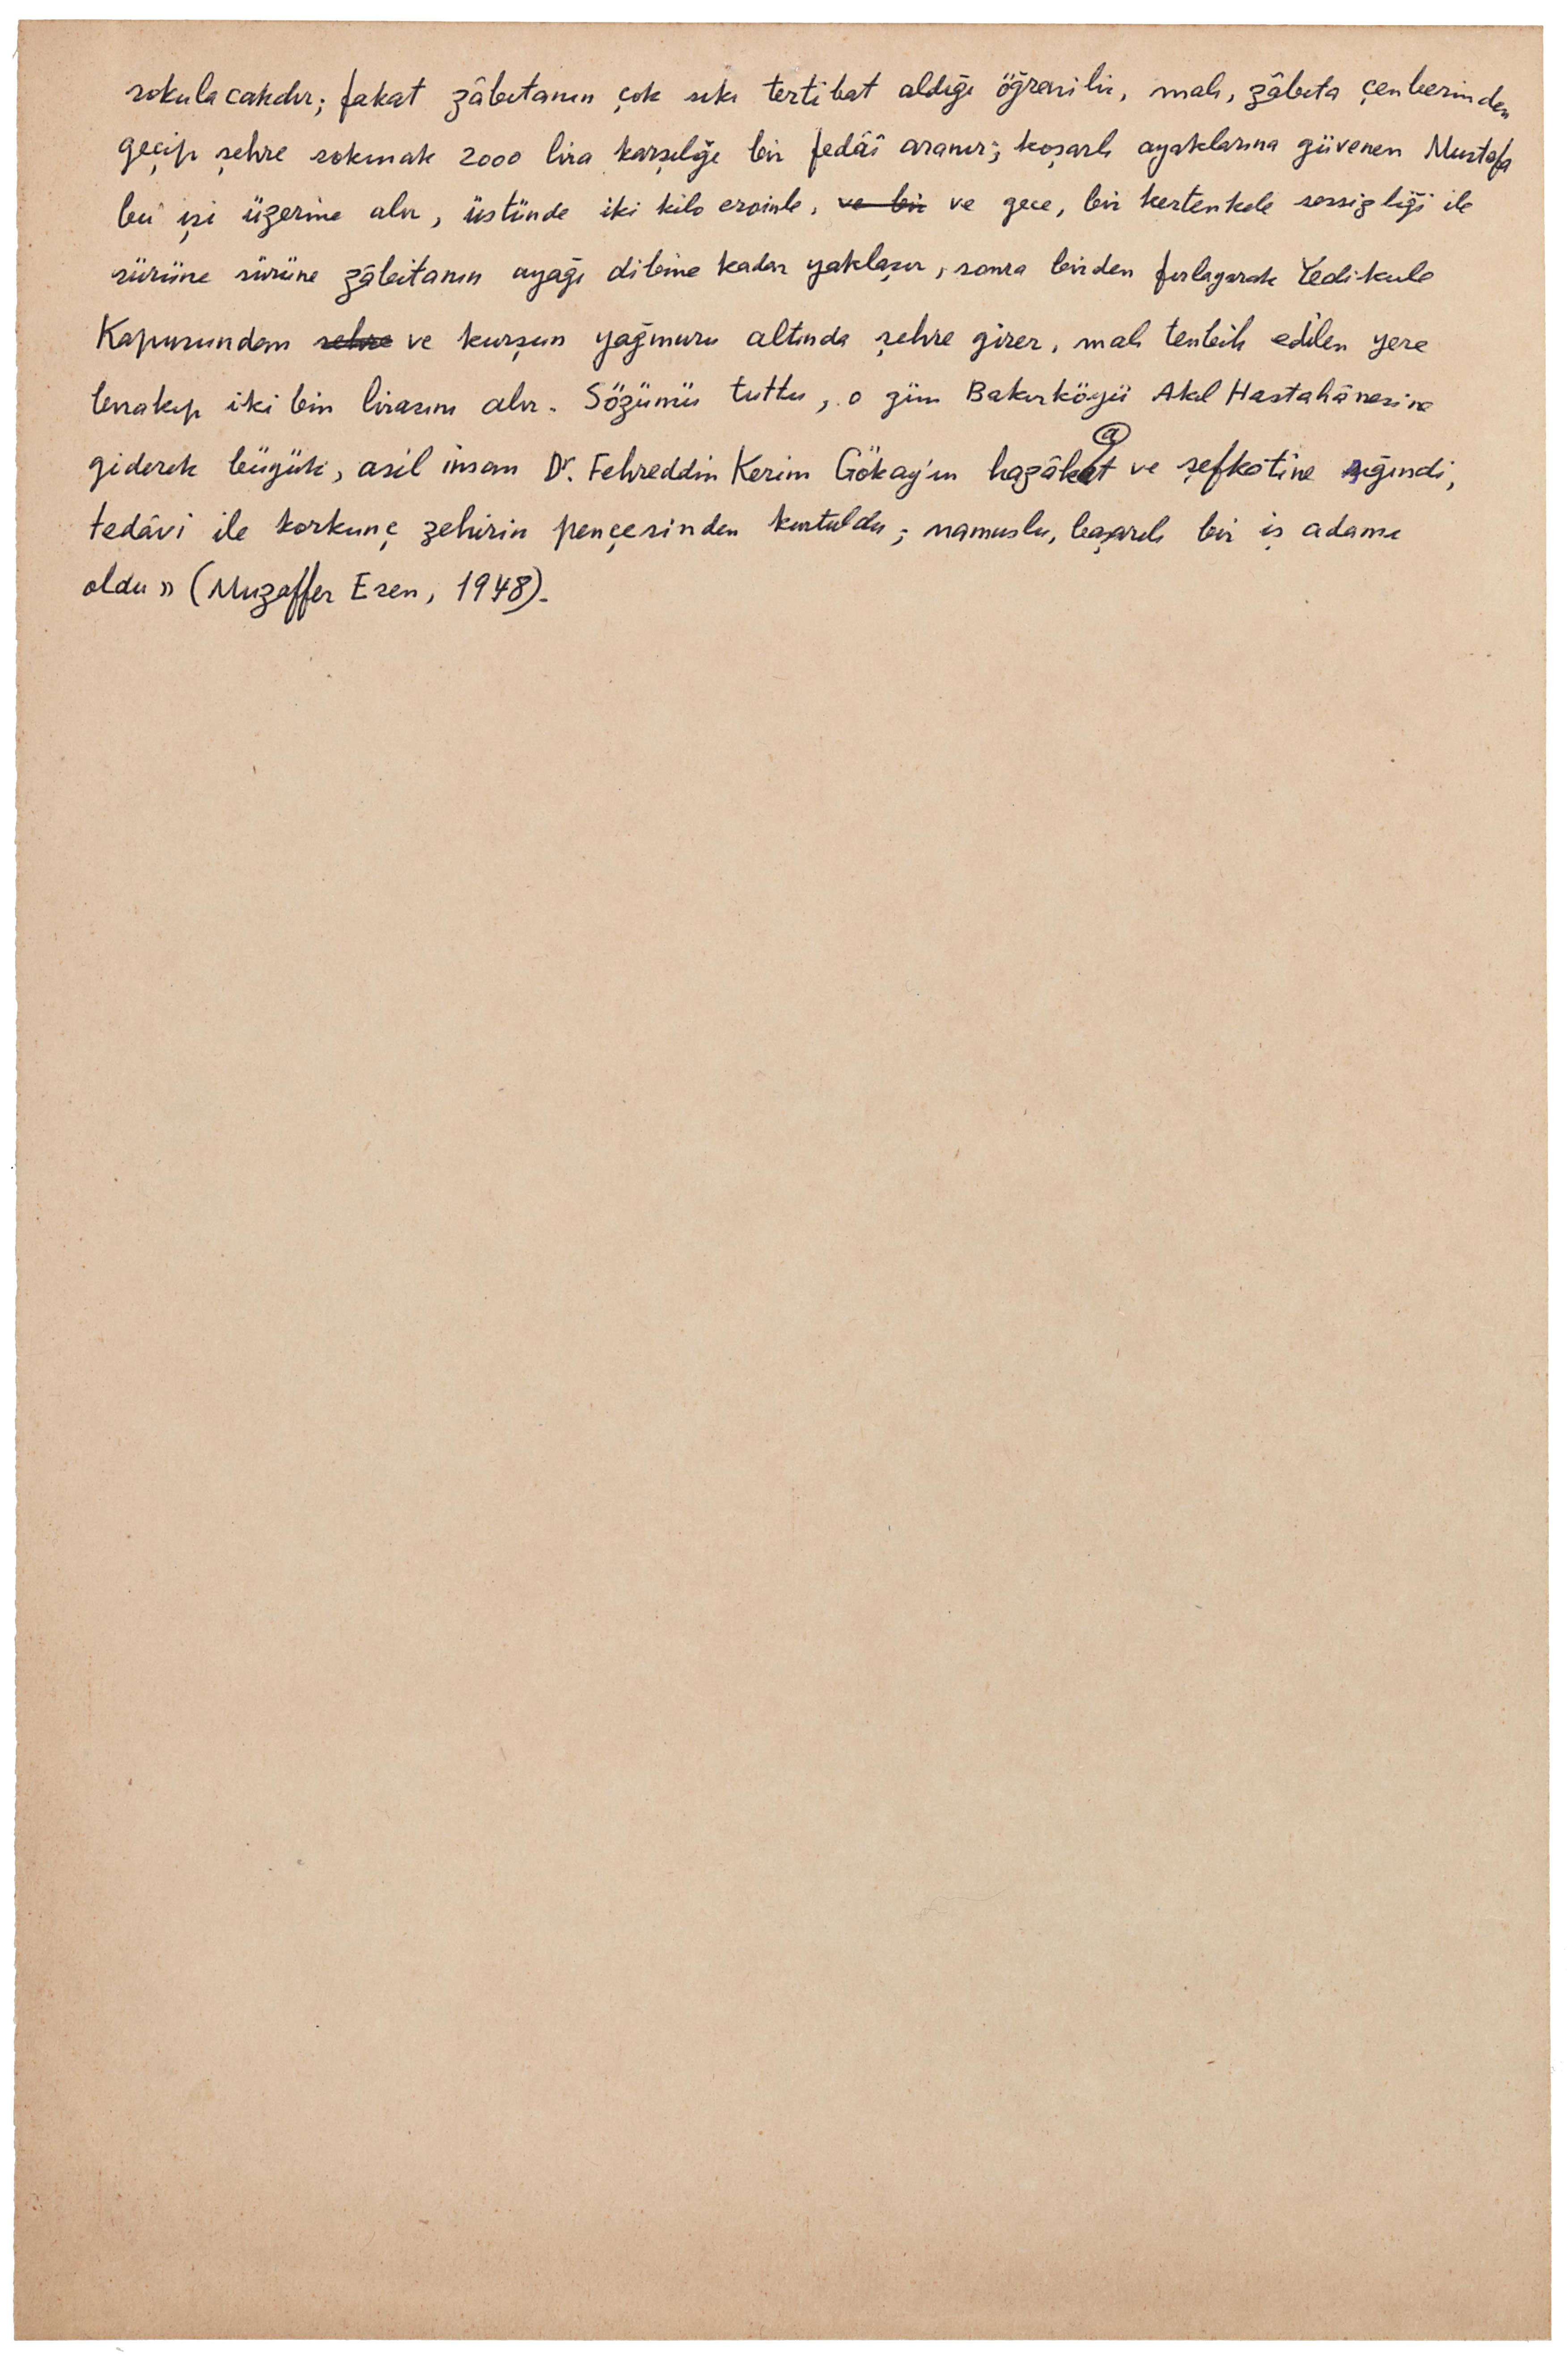 sokulacakdır; fakat zâbıtanın çok sıkı tertibat aldığı öğrenilir, malı, zâbıta çenberinden
geçip şehre sokmak 2000 lira karşılığı bir fedâî aranır; koşarlı ayaklarına güvenen Mustafa
bu işi üzerine alır, üstünde iki kilo eroinle, ve bir ve gece, bir kertenkele sessizliği ile
sürüne sürüne zâbıtanın ayağı dibine kadar yaklaşır, sonra birden fırlayarak Yedikule
Kapusundan şehre ve kurşun yağmuru altında şehre girer, malı tenbih edilen yere
bırakıp iki bin lirasını alır. Sözünü tuttu, o gün Bakırköyü Akıl Hastahânesine
giderek büyük, asil insan Dr. Fehreddin Kerim Gökay'ın hazâkat ve şefkatine sığındı,
tedâvi ile korkunç zehirin pençesinden kurtuldu; namuslu, başarılı bir iş adamı
oldu» (Muzaffer Esen, 1948).